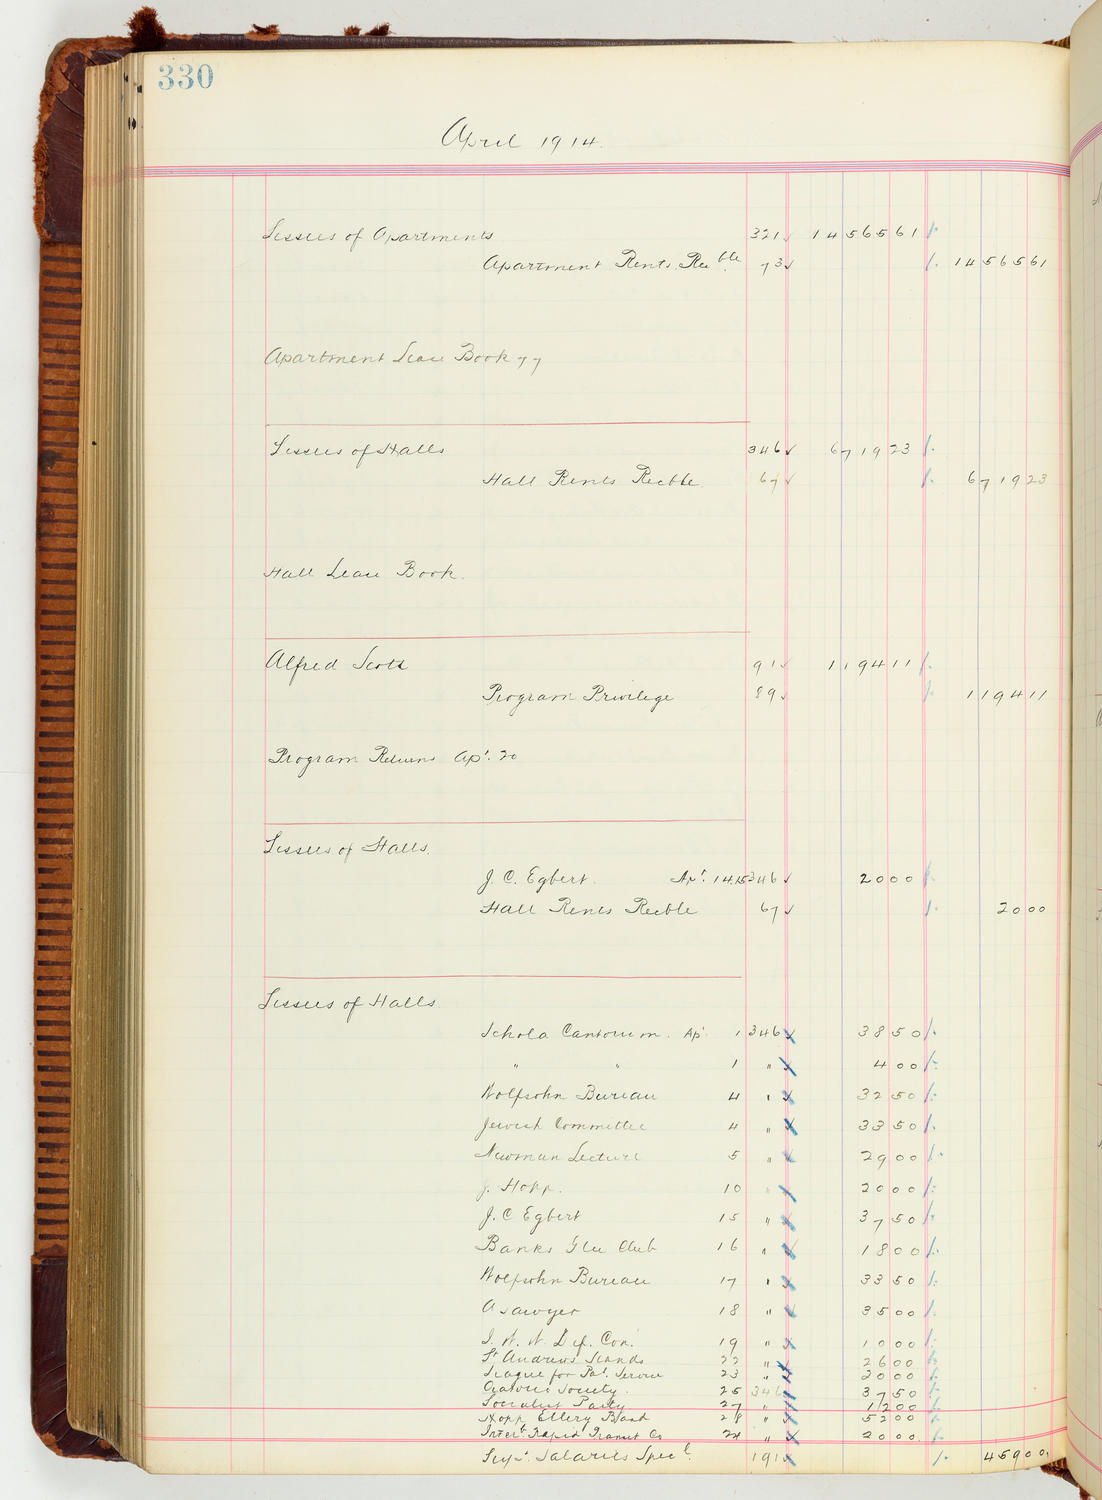 330
April 1914.
Lessees of Apartments 321 ✓ 14 565 61
Apartment Rents Recble 73 ✓ 14 565 61
Apartment Lease Book 77
Lessees of Halls 346 ✓ 6 719 23
Hall Rents Recble 67 ✓ 6 719 23
Hall Lease Book.
Alfred Scott 91 ✓ 1 194 11
Program Privilege 89 ✓ 1 194 11
Program Returns Apl. 20
Lessees of Halls.
J. C. Egbert. Apl. 14.15 346 ✓ 20 00
Hall Rents Recble 67 ✓ 20 00
Lessees of Halls
Schola Cantorum. Apl. 1 346 38 50
" " 1 " 4 00
Wolfsohn Bureau 4 " 32 50
Jewish Committee 4 " 33 50
Newman Lecture 5 " 29 00
J. Hopp. 10 " 20 00
J. C Egbert 15 " 37 50
Banks Glee Club 16 " 18 00
Wolfsohn Bureau 17 " 33 50
A Sawyer 18 " 35 00
I. W. W. Def. Con. 19 " 10 00
St Andrews 22 " 26 00
League for Pol. Service 23 " 20 00
Oratorio Society. 25 346 37 50
Socialist Party 27 " 12 00
Hopp Ellery Band 28 " 52 00
Intert. Rapid Transit Co 24 " 20 00
Salaries Specl. 191 459 00